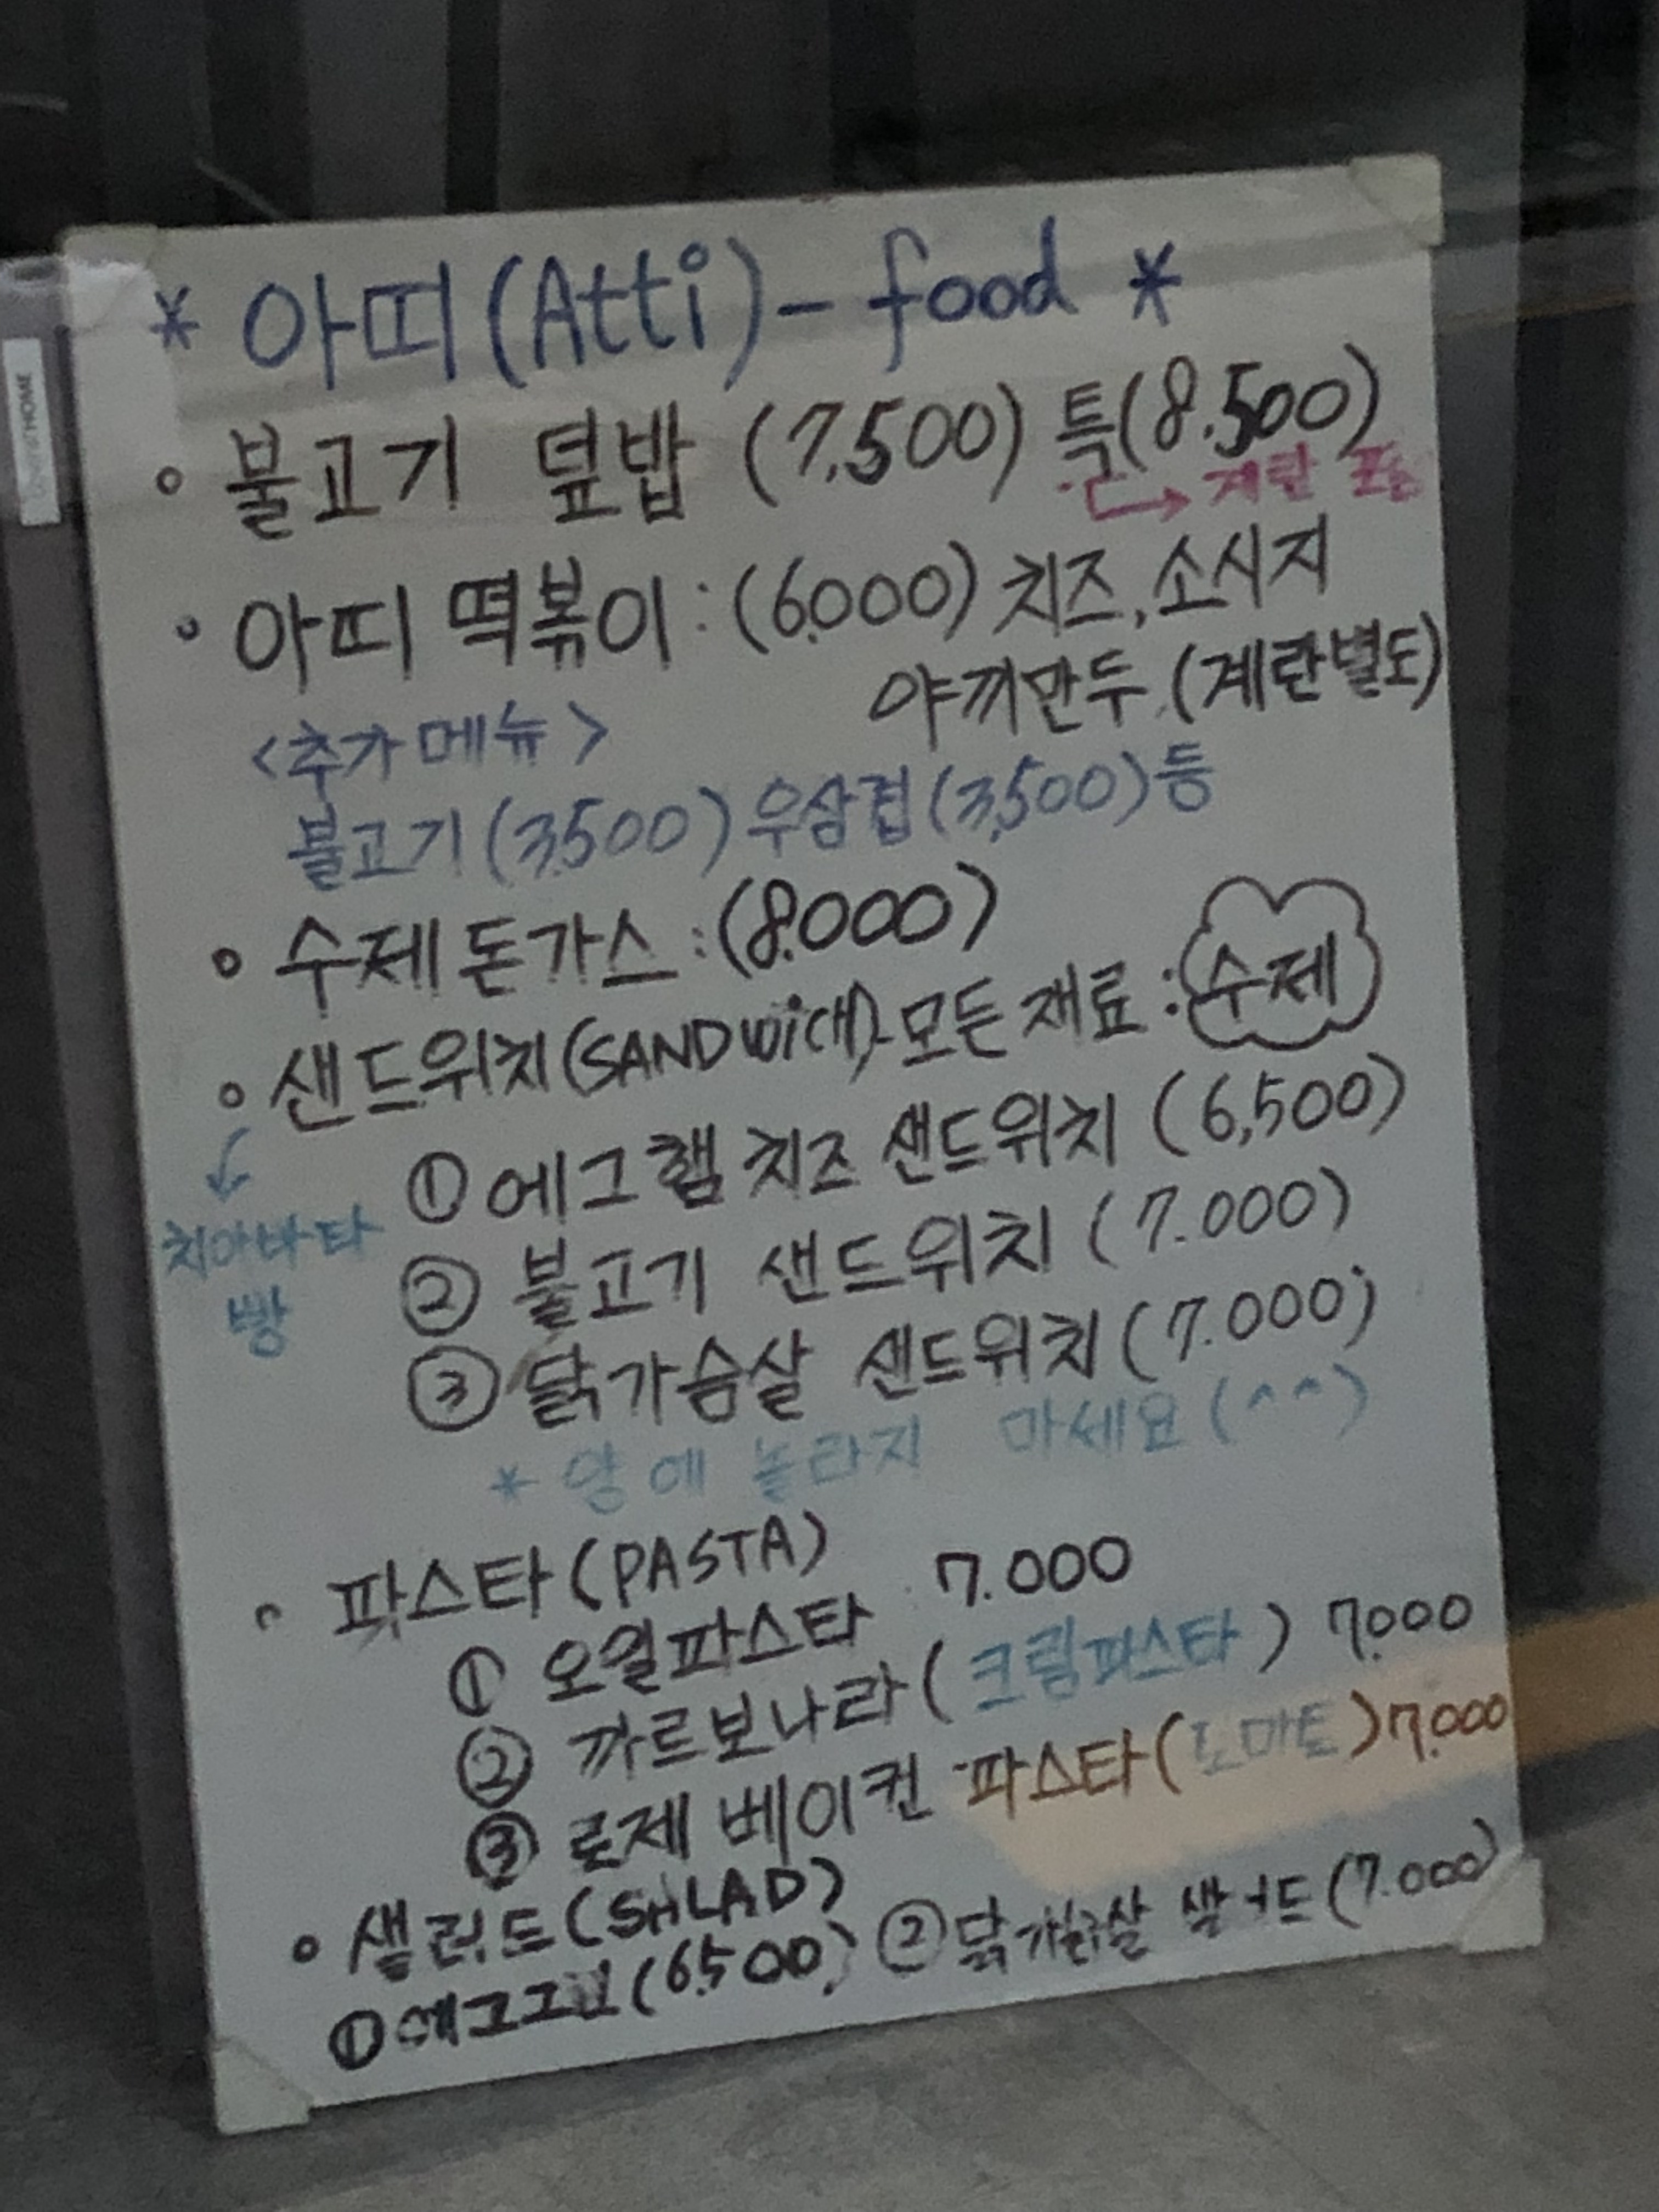 * 아띠(Atti)-food *
◦ 불고기 덮밥 (7,500) 특(8.500)
→ 계란 포함
◦ 아띠 떡볶이 : (6.000) 치즈, 소시지
야끼만두 (계란별도)
<추가메뉴>
불고기(3,500) 우삼겹(3,500)등
◦ 수제돈가스 : (8.000)
◦ 샌드위치(SANDWiCH)-모든 재료 : 수제
↓
치아바타
빵
① 에그햄 치즈 샌드위치 (6,500)
② 불고기 샌드위치 (7.000)
③ 닭가슴살 샌드위치 (7.000)
* 양에 놀라지 마세요(^^)
◦ 파스타(PASTA)
① 오일파스타 7.000
② 까르보나라(크림파스타) 7.000
③ 로제 베이컨 파스타(토마토) 7.000
◦ 샐러드(SALAD)
① 에그그린(6,500) ② 닭가슴살 샐러드(7.000)